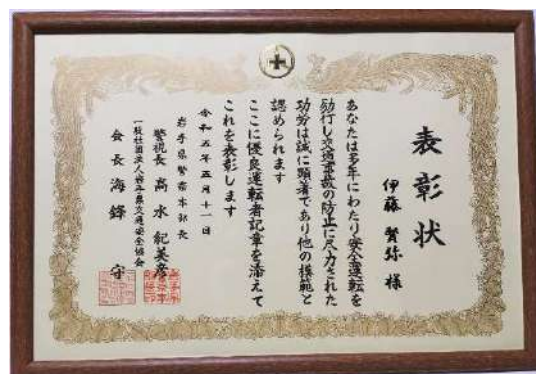 表彰状
伊藤 賢弥 様
あなたは多年にわたり安全運転を
励行し交通事故の防止に尽力された
功労は誠に顕著であり他の模範と
認められます
ここに優良運転者記章を添えて
これを表彰します
令和五年五月十一日
岩手県警察本部長
警視長 高水 紀美彦
一般社団法人岩手県交通安全協会
会長 海鋒 守